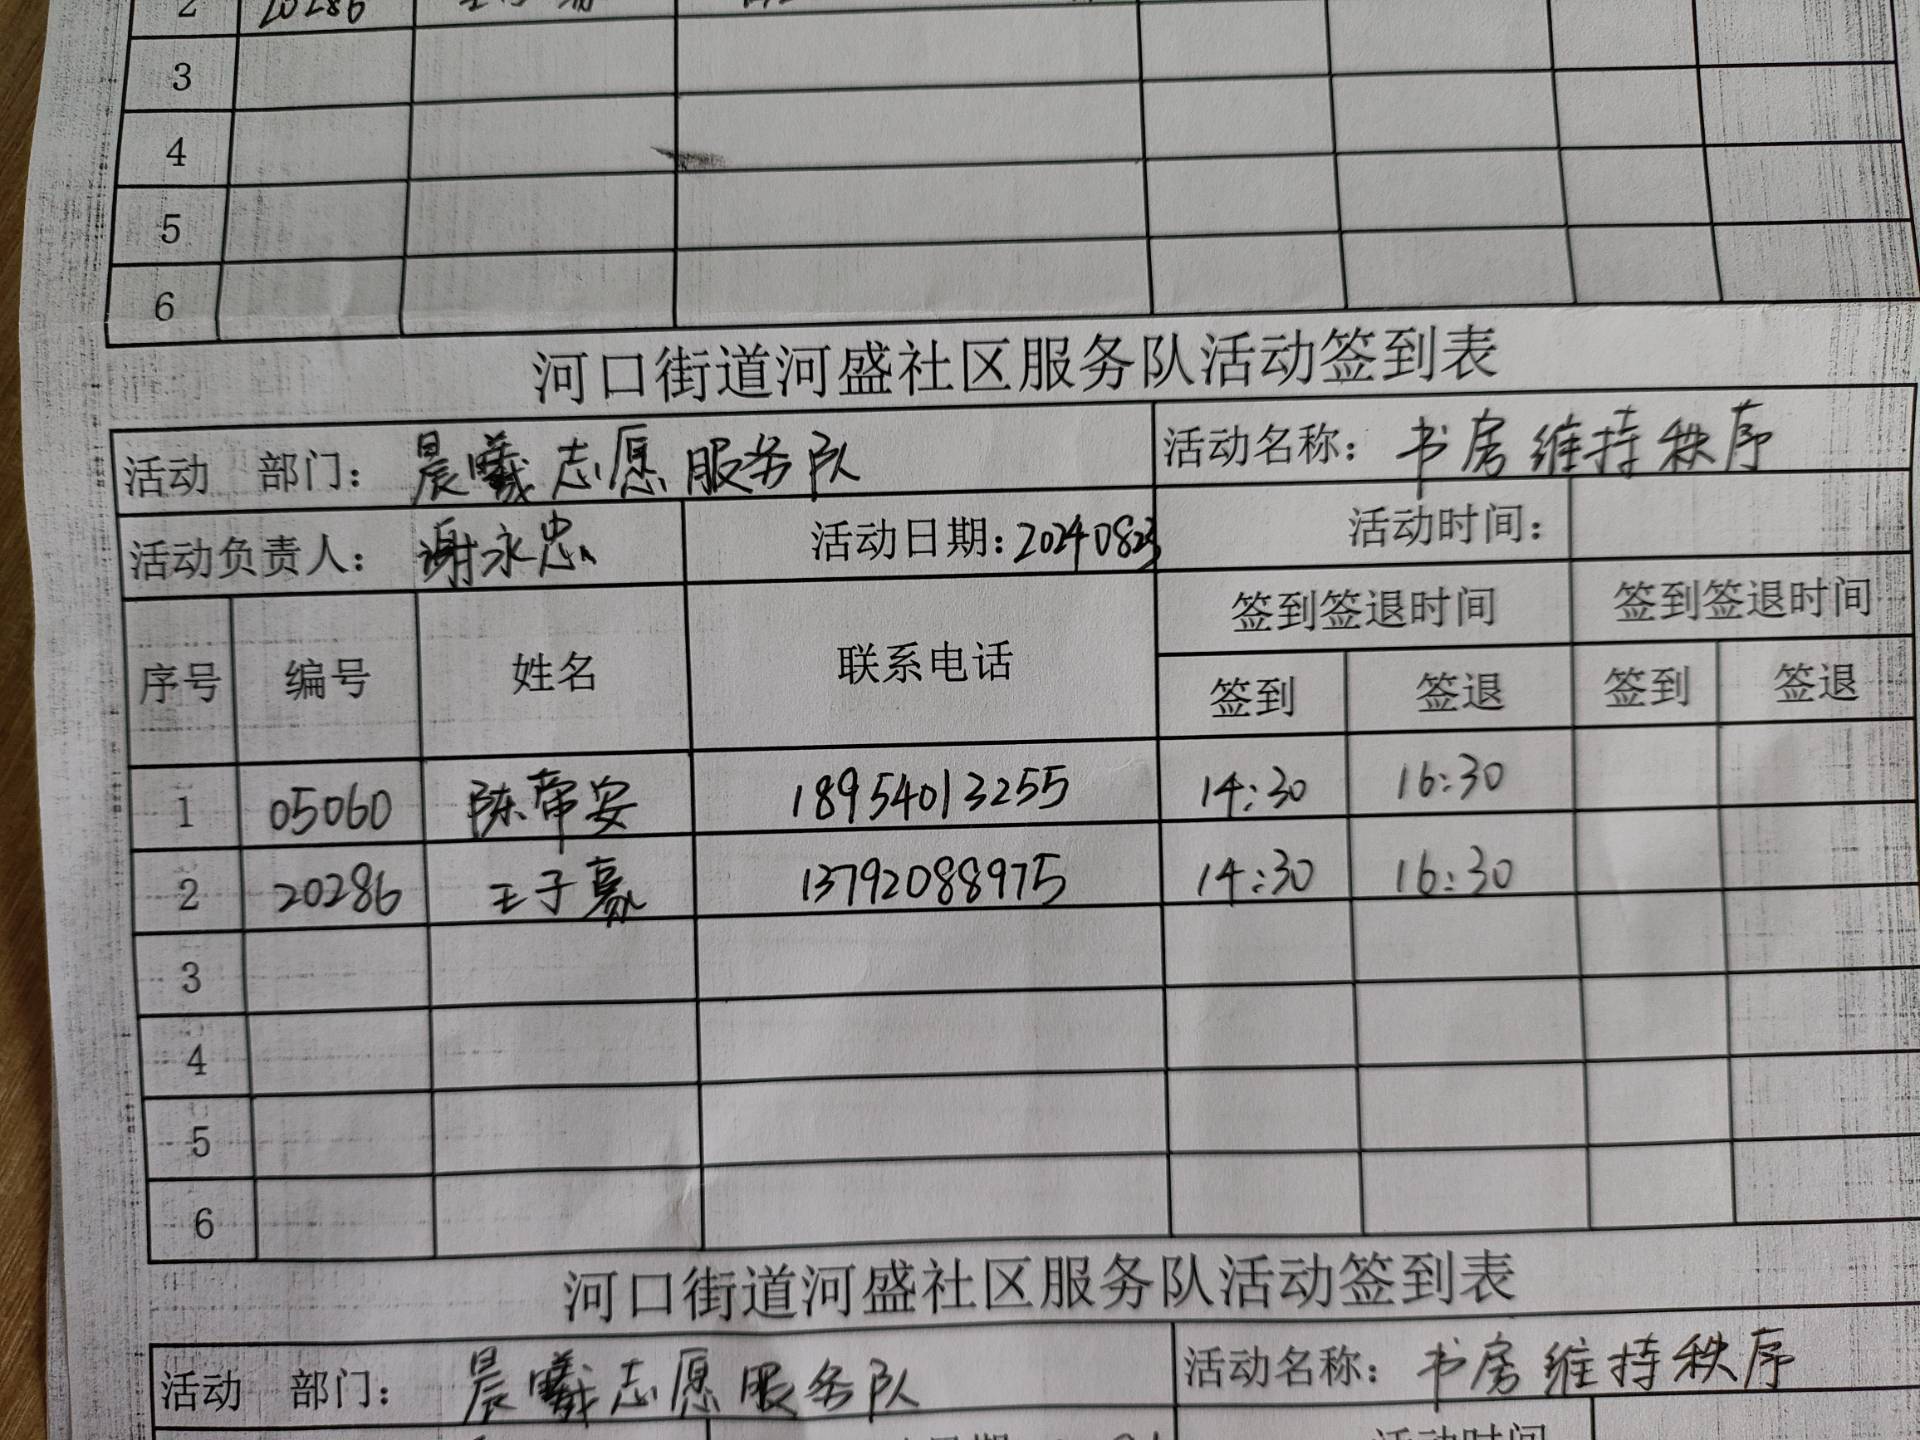 2 20286
3
4
5
6
河口街道河盛社区服务队活动签到表
活动 部门： 晨曦志愿服务队 活动名称： 书房维持秩序
活动负责人： 谢永忠 活动日期：20240823 活动时间：
签到签退时间 签到签退时间
序号 编号 姓名 联系电话 签到 签退 签到 签退
1 05060 陈帮安 18954013255 14:30 16:30
2 20286 王子豪 13792088975 14:30 16:30
3
4
5
6
河口街道河盛社区服务队活动签到表
活动 部门： 晨曦志愿服务队 活动名称： 书房维持秩序
活动时间